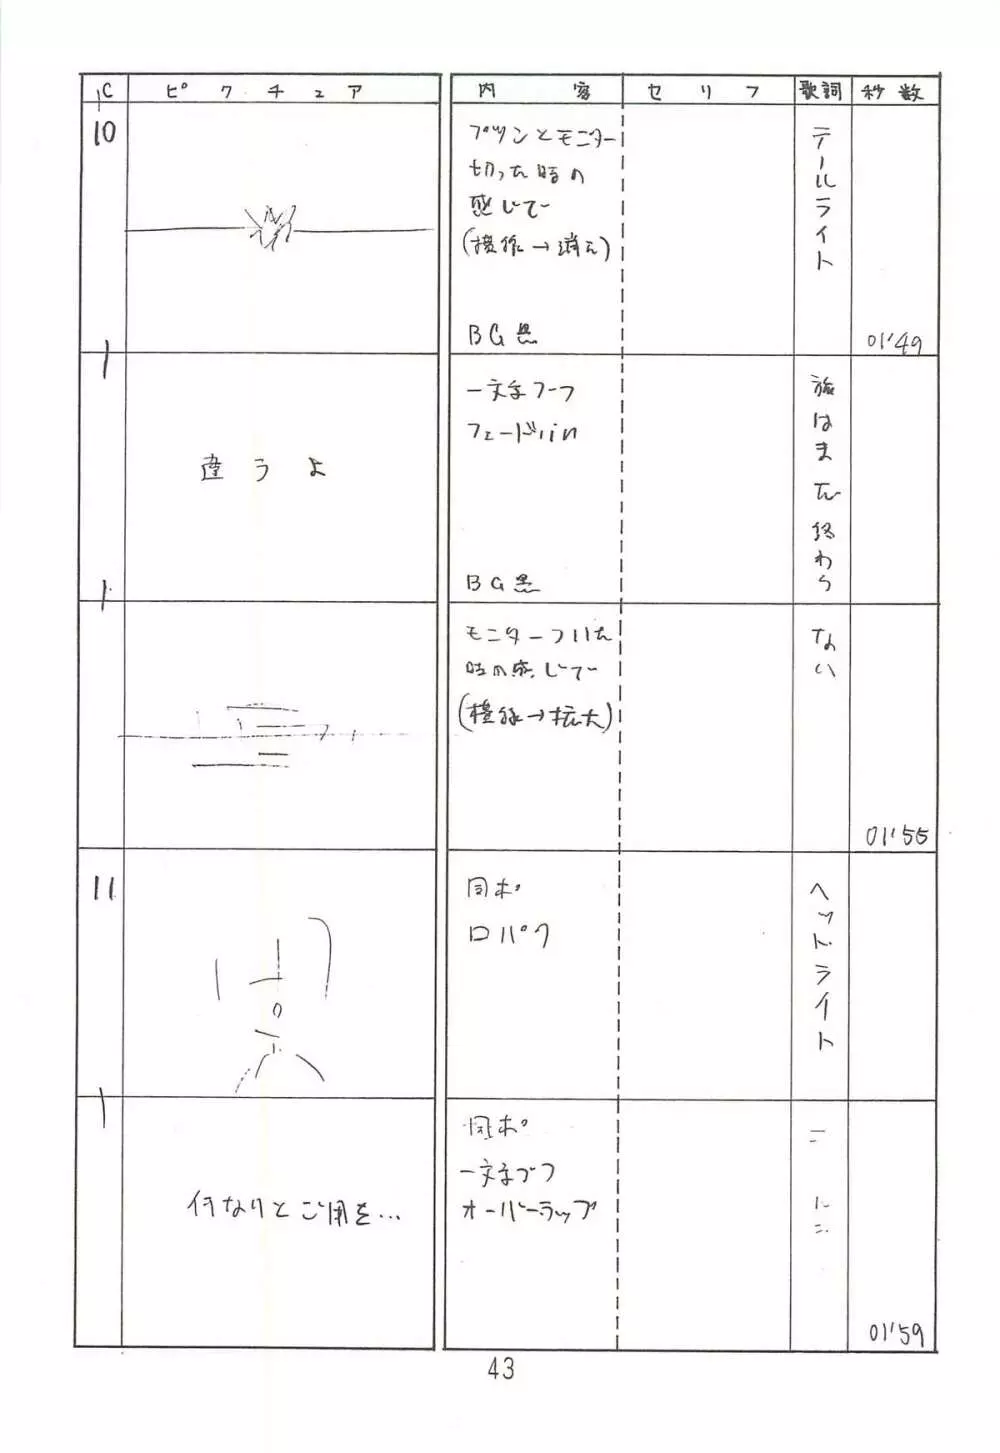 C ピクチュア 内容 セリフ 歌詞 秒数
10
プツンとモニター
切った時の
感じで
(横線→消え)
BG黒
テールライト
01'49
違うよ
一文字づつ
フェードin
BG黒
旅はまだ終わら
モニターついた
時の感じで
(横線→拡大)
ない
01'55
11
同ポ
口パク
ヘッドライト
何なりとご用を...
同ポ
一文字づつ
オーバーラップ
01'59
43